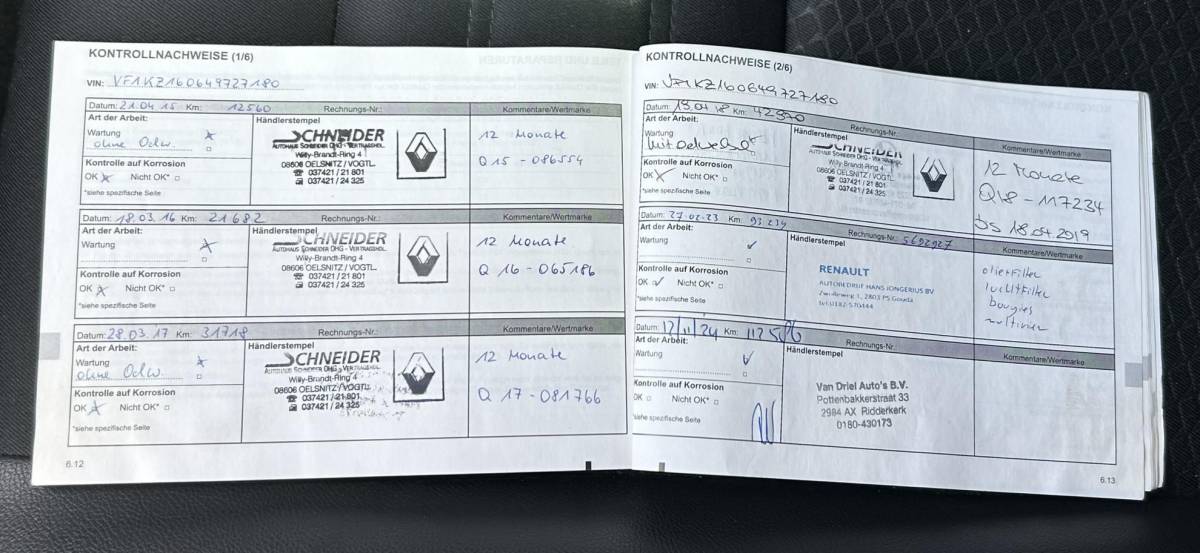 KONTROLLNACHWEISE (1/6)
VIN: VF1KZ160649727180
Datum: 21.04.15 Km: 12560 Rechnungs-Nr.: Kommentare/Wertmarke
Art der Arbeit: Händlerstempel
Wartung
ohne Oelw.
SCHNEIDER
AUTOHAUS SCHNEIDER OHG - VERTRAGSHDL.
Willy-Brandt-Ring 4
08606 OELSNITZ / VOGTL.
037421 / 21 801
037421 / 24 325
12 Monate
Q 15 - 086554
Kontrolle auf Korrosion
OK Nicht OK*
*siehe spezifische Seite
Datum: 18.03.16 Km: 21682 Rechnungs-Nr.: Kommentare/Wertmarke
Art der Arbeit: Händlerstempel
Wartung
SCHNEIDER
AUTOHAUS SCHNEIDER OHG - VERTRAGSHDL.
Willy-Brandt-Ring 4
08606 OELSNITZ / VOGTL.
037421 / 21 801
037421 / 24 325
12 Monate
Q 16 - 065186
Kontrolle auf Korrosion
OK Nicht OK*
*siehe spezifische Seite
Datum: 28.03.17 Km: 31718 Rechnungs-Nr.: Kommentare/Wertmarke
Art der Arbeit: Händlerstempel
Wartung
ohne Oelw.
SCHNEIDER
AUTOHAUS SCHNEIDER OHG - VERTRAGSHDL.
Willy-Brandt-Ring 4
08606 OELSNITZ / VOGTL.
037421 / 21 801
037421 / 24 325
12 Monate
Q 17 - 081766
Kontrolle auf Korrosion
OK Nicht OK*
*siehe spezifische Seite
6.12
KONTROLLNACHWEISE (2/6)
VIN: VF1KZ160649727180
Datum: 18 Km: 42970 Rechnungs-Nr.: Kommentare/Wertmarke
Art der Arbeit: Händlerstempel
Wartung
SCHNEIDER
AUTOHAUS SCHNEIDER OHG - VERTRAGSHDL.
Willy-Brandt-Ring 4
08606 OELSNITZ / VOGTL.
037421 / 21 801
037421 / 24 325
12 Monate
Q18 - 117234
18.04.2019
Kontrolle auf Korrosion
OK Nicht OK*
*siehe spezifische Seite
Datum: 27.02.23 Km: 93234 Rechnungs-Nr.: 5692927 Kommentare/Wertmarke
Art der Arbeit: Händlerstempel
Wartung
RENAULT
AUTOBEDRIJF HANS JONGERIUS BV
2803 PS Gouda
Tel. 0182-570444
oliefilter
luchtfilter
bougies
Kontrolle auf Korrosion
OK Nicht OK*
*siehe spezifische Seite
Datum: 12/11/24 Km: 112506 Rechnungs-Nr.: Kommentare/Wertmarke
Art der Arbeit: Händlerstempel
Wartung
Van Driel Auto's B.V.
Pottenbakkerstraat 33
2984 AX Ridderkerk
0180-430173
Kontrolle auf Korrosion
OK Nicht OK*
*siehe spezifische Seite
6.13